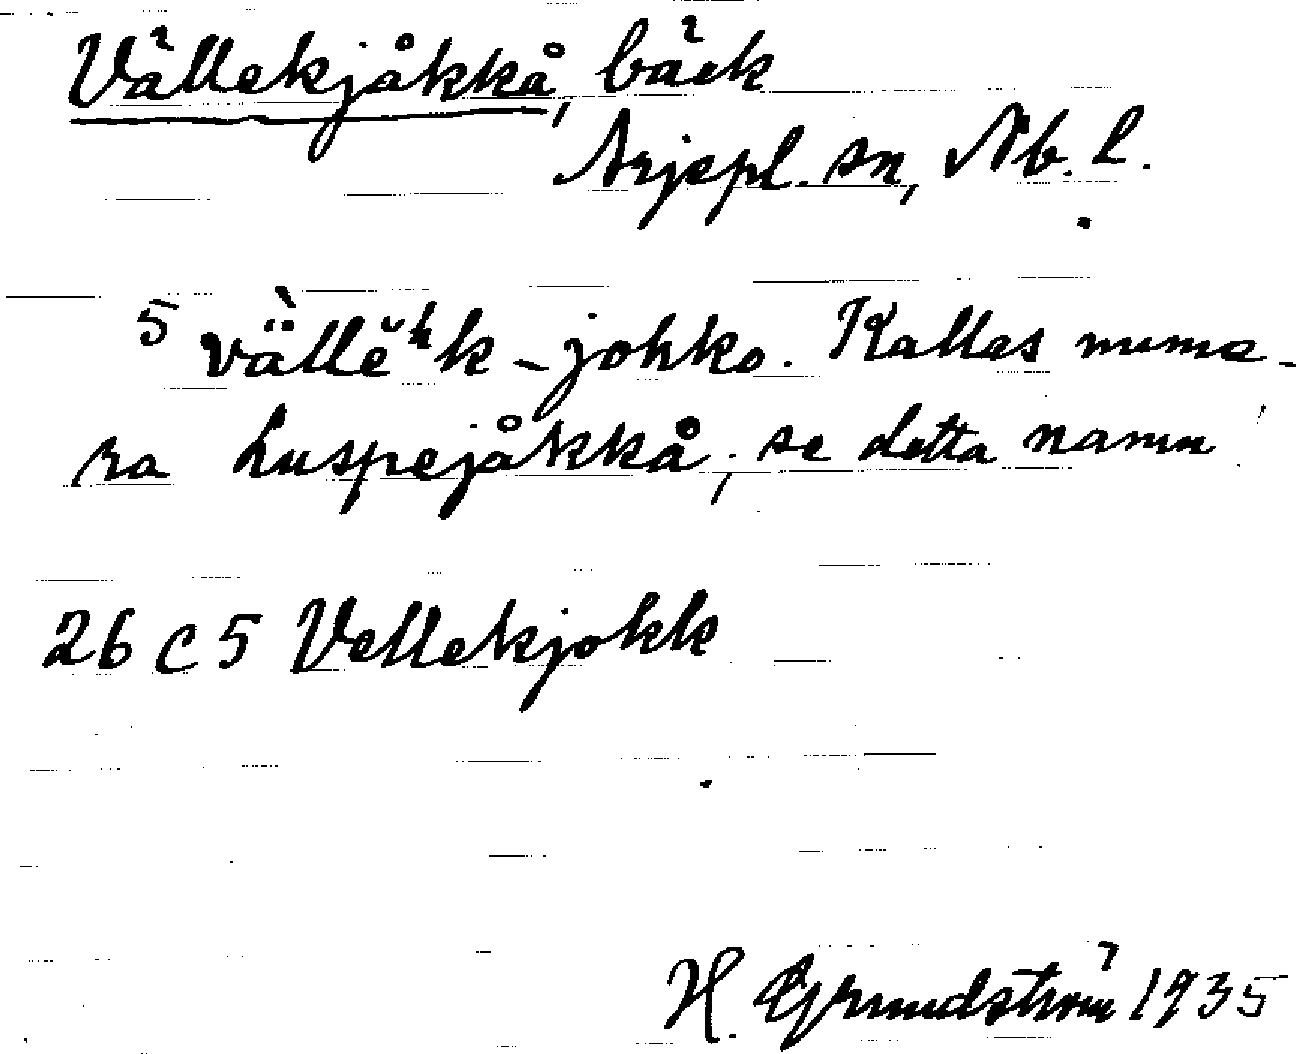 Vällekjåkkå, bäck
Arjepl. sn, Nb. l.
5 vä̀llĕʰk-johko. Kallas nume-
ra Luspejåkkå, se detta namn
26 C 5 Vellekjokk
H. Grundström 1935